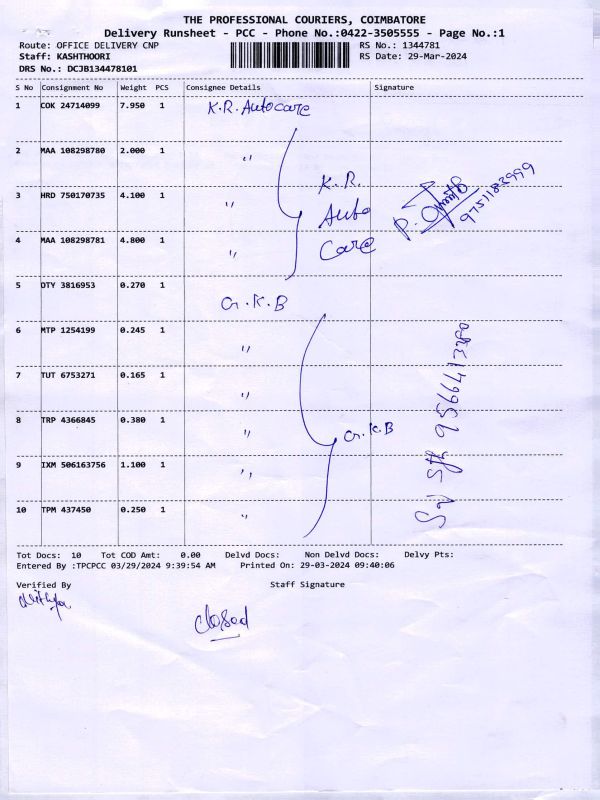 THE PROFESSIONAL COURIERS, COIMBATORE
Delivery Runsheet - PCC - Phone No.:0422-3505555 - Page No.:1
Route: OFFICE DELIVERY CNP
Staff: KASHTHOORI
DRS No.: DCJB134478101
RS No.: 1344781
RS Date: 29-Mar-2024
S No Consignment No Weight PCS Consignee Details Signature
1 COK 24714099 7.950 1 K.R. Autocare
2 MAA 108298780 2.000 1 "
3 HRD 750170735 4.100 1 "
4 MAA 108298781 4.800 1 "
K.R.
Auto
Care
P.
9751183999
5 OTY 3816953 0.270 1 G.K.B
6 MTP 1254199 0.245 1 "
7 TUT 6753271 0.165 1 "
8 TRP 4366845 0.380 1 "
9 IXM 506163756 1.100 1 "
10 TPM 437450 0.250 1 "
G.K.B
Tot Docs: 10 Tot COD Amt: 0.00 Delvd Docs: Non Delvd Docs: Delvy Pts:
Entered By :TPCPCC 03/29/2024 9:39:54 AM Printed On: 29-03-2024 09:40:06
Verified By Staff Signature
closed